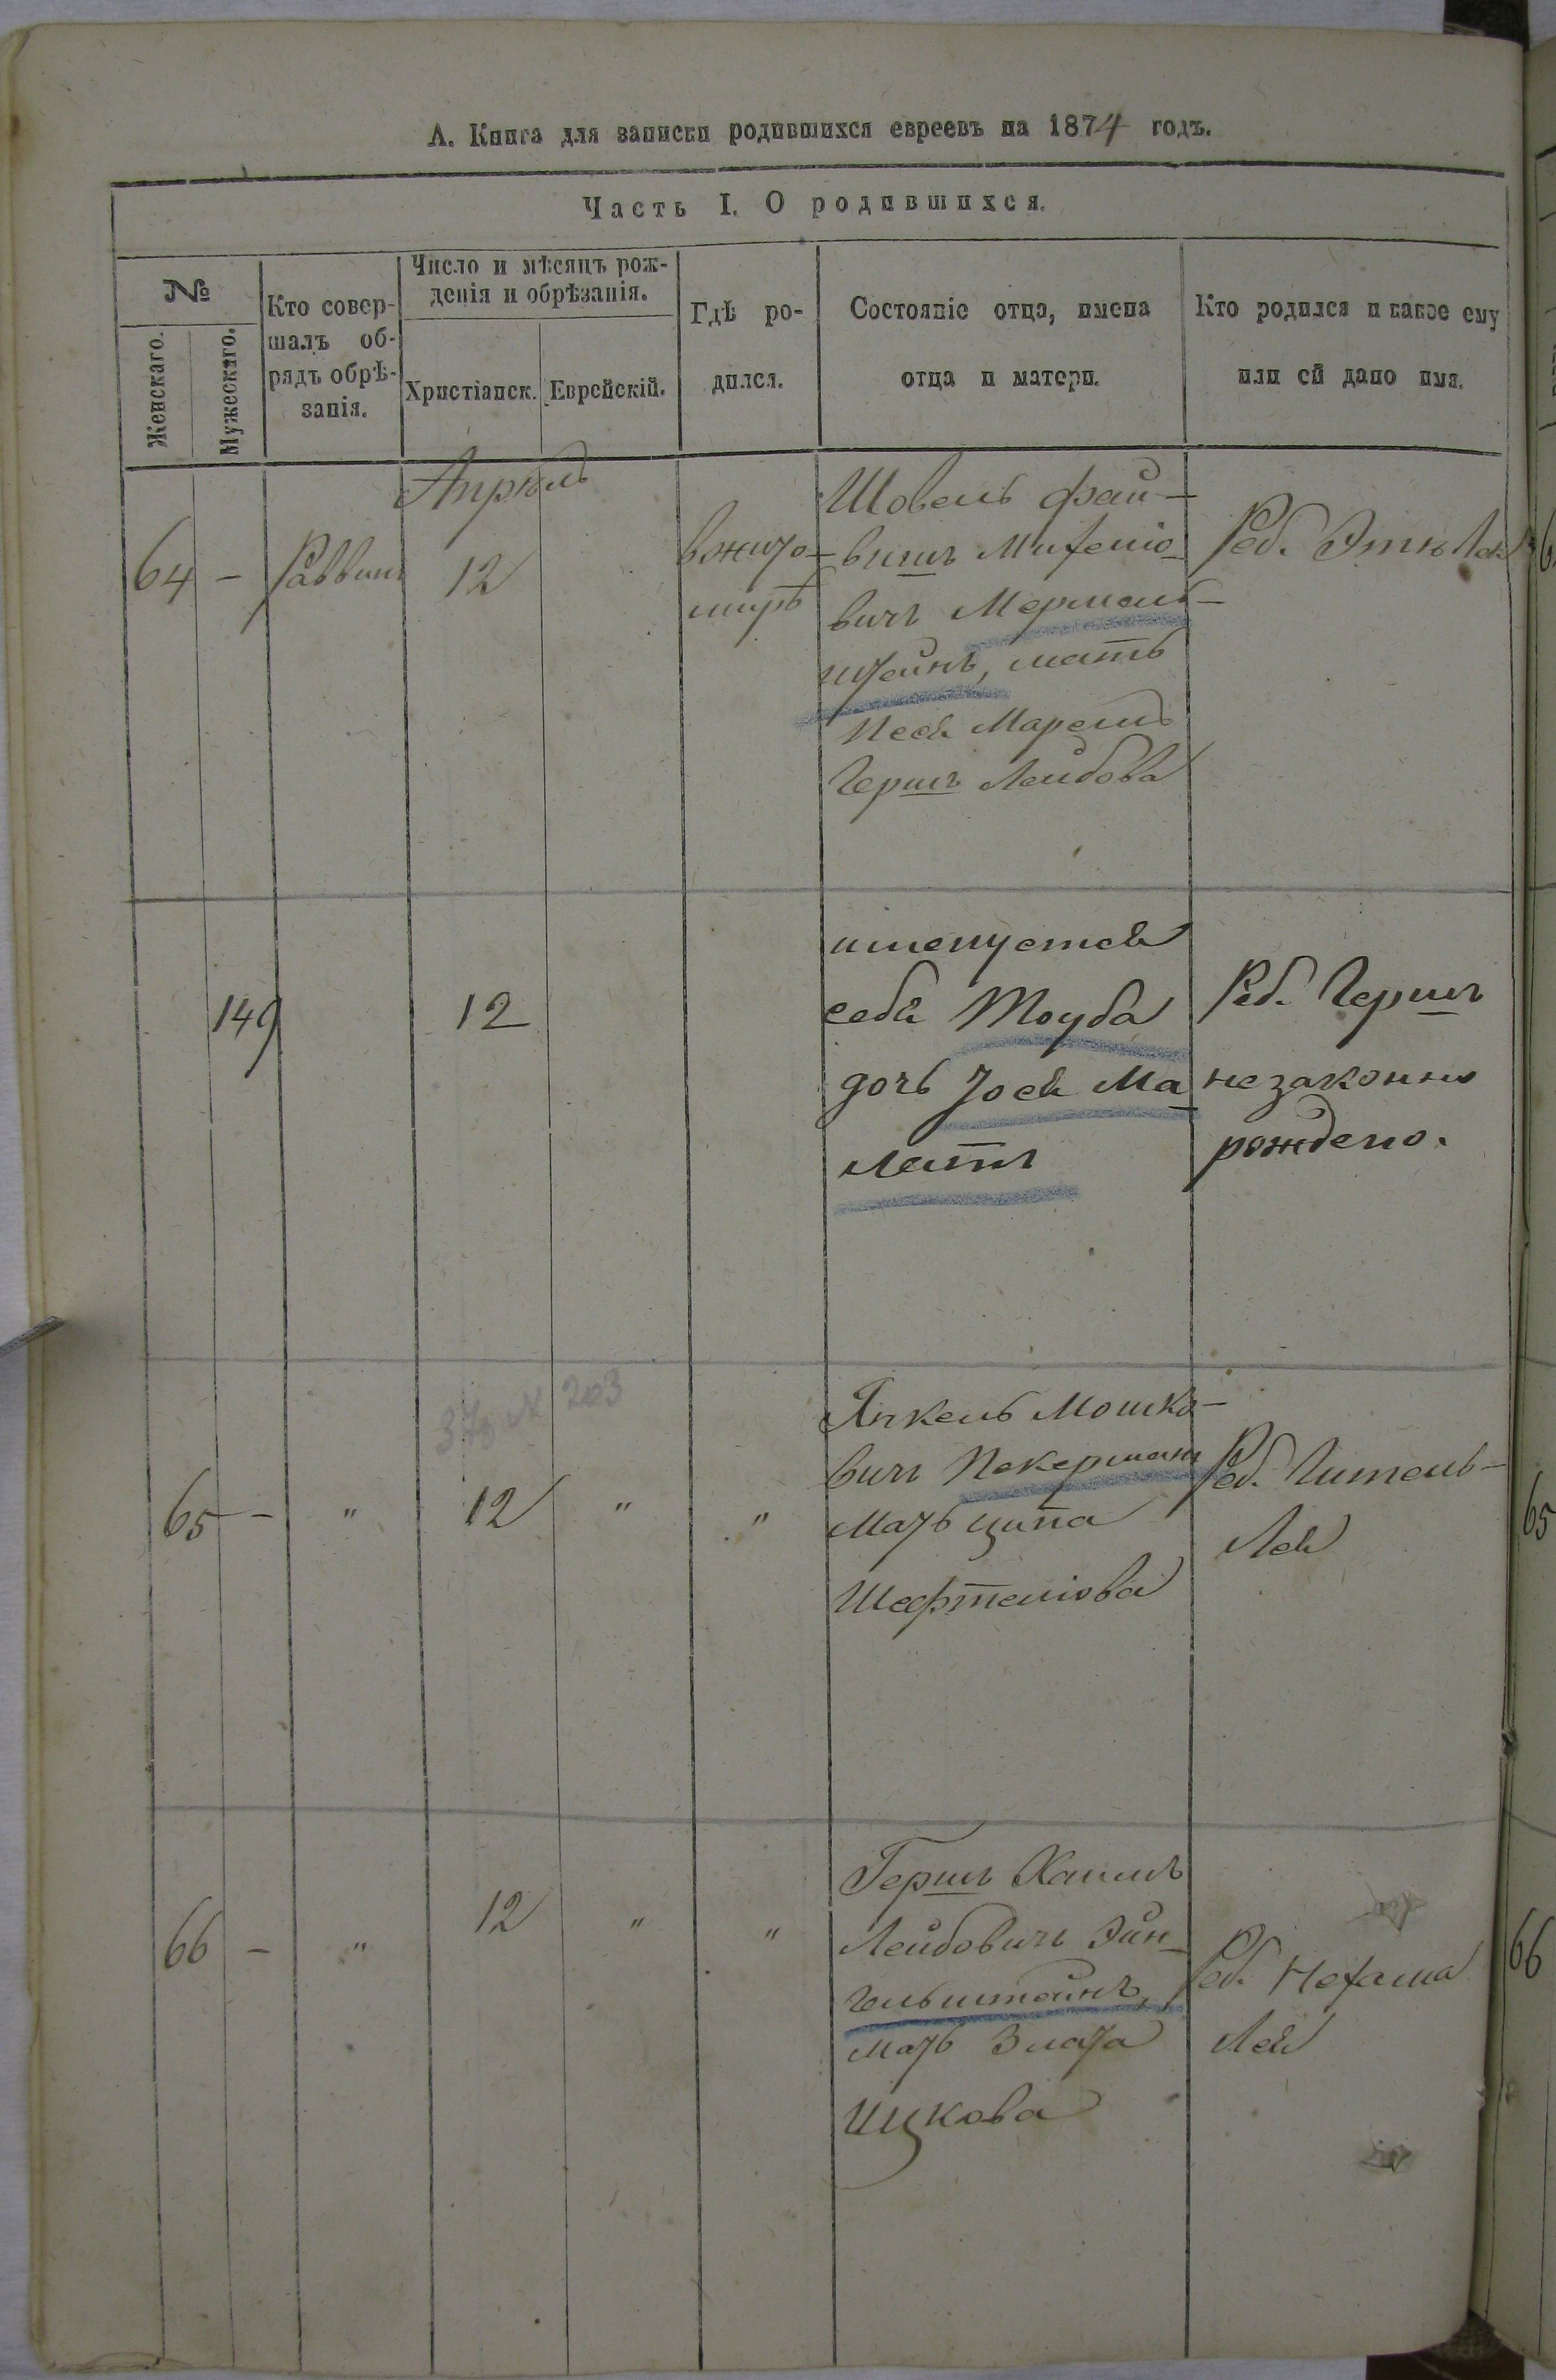 А. Книга для записки родившихся евреевъ на 1874 годъ.
Часть I. О родившихся.
№
Женскаго.
Мужескаго.
Кто совер-
шалъ об-
рядъ обрѣ-
занія.
Число и мѣсяцъ рож-
денія и обрѣзанія.
Христіанск. Еврейскій.
Гдѣ ро-
дился.
Состояніе отца, имена
отца и матери.
Кто родился и какое ему
или ей дано имя.
Апрѣль
64 – Раввинъ 12
вжито-
мирѣ
Шовель Фай-
вишъ
вичъ Мермель-
штейнъ, мать
Песя
Гершъ Лейбова
Реб. Этя Лея
149 12
именуетъ
себя Тоуба
дочь Іося Ма
латъ
Реб. Гершъ
незаконно
рождено.
370 N 203
65 – " 12 " "
Янкель Мошко-
вичъ Пекерманъ
мать Ципа
Шефтеліова
Реб. Гитель-
Лея
66 – " 12 " "
Гершъ Хаимъ
Лейбовичъ Эйн-
гельштейнъ,
мать Злата
Ицкова
Реб. Нехама
Лея
65
66